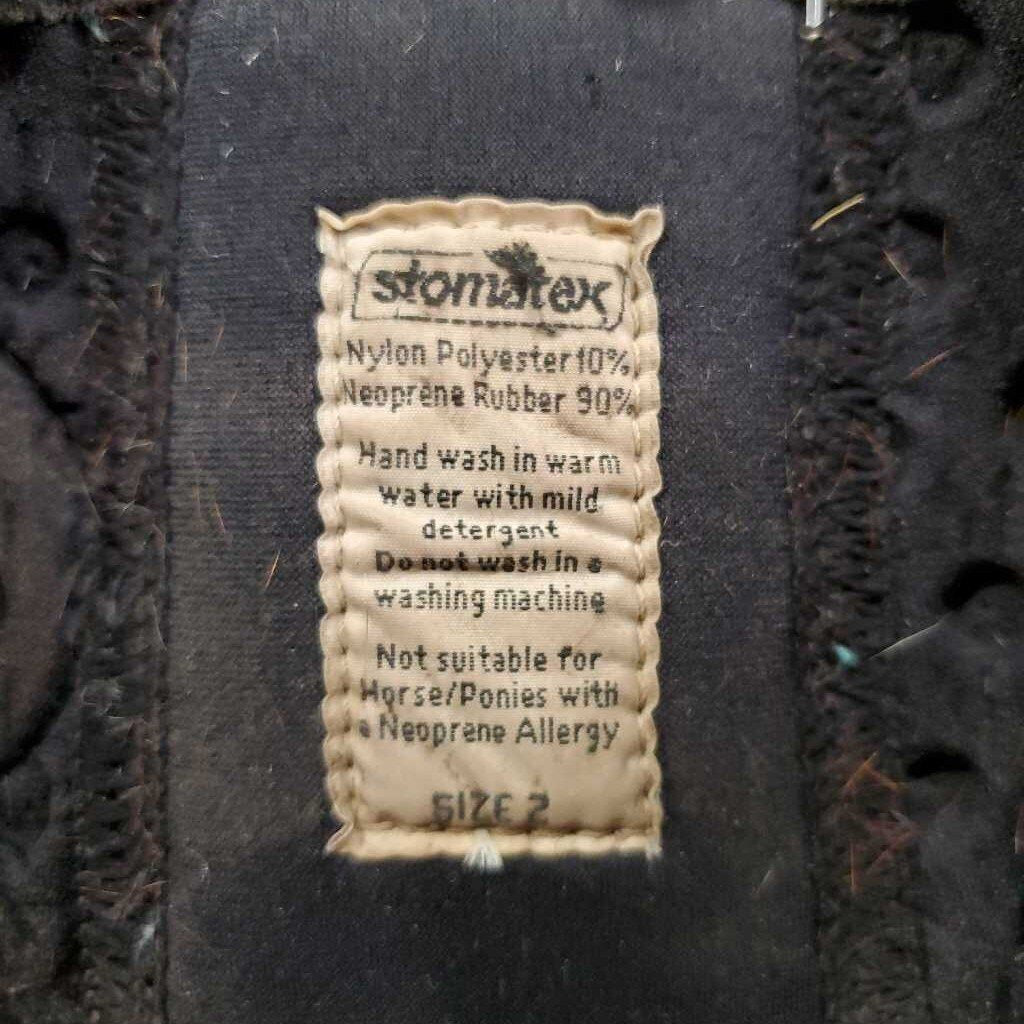 stomatex
Nylon Polyester 10%
Neoprene Rubber 90%
Hand wash in warm
water with mild
detergent
Do not wash in a
washing machine
Not suitable for
Horse/Ponies with
a Neoprene Allergy
SIZE 2